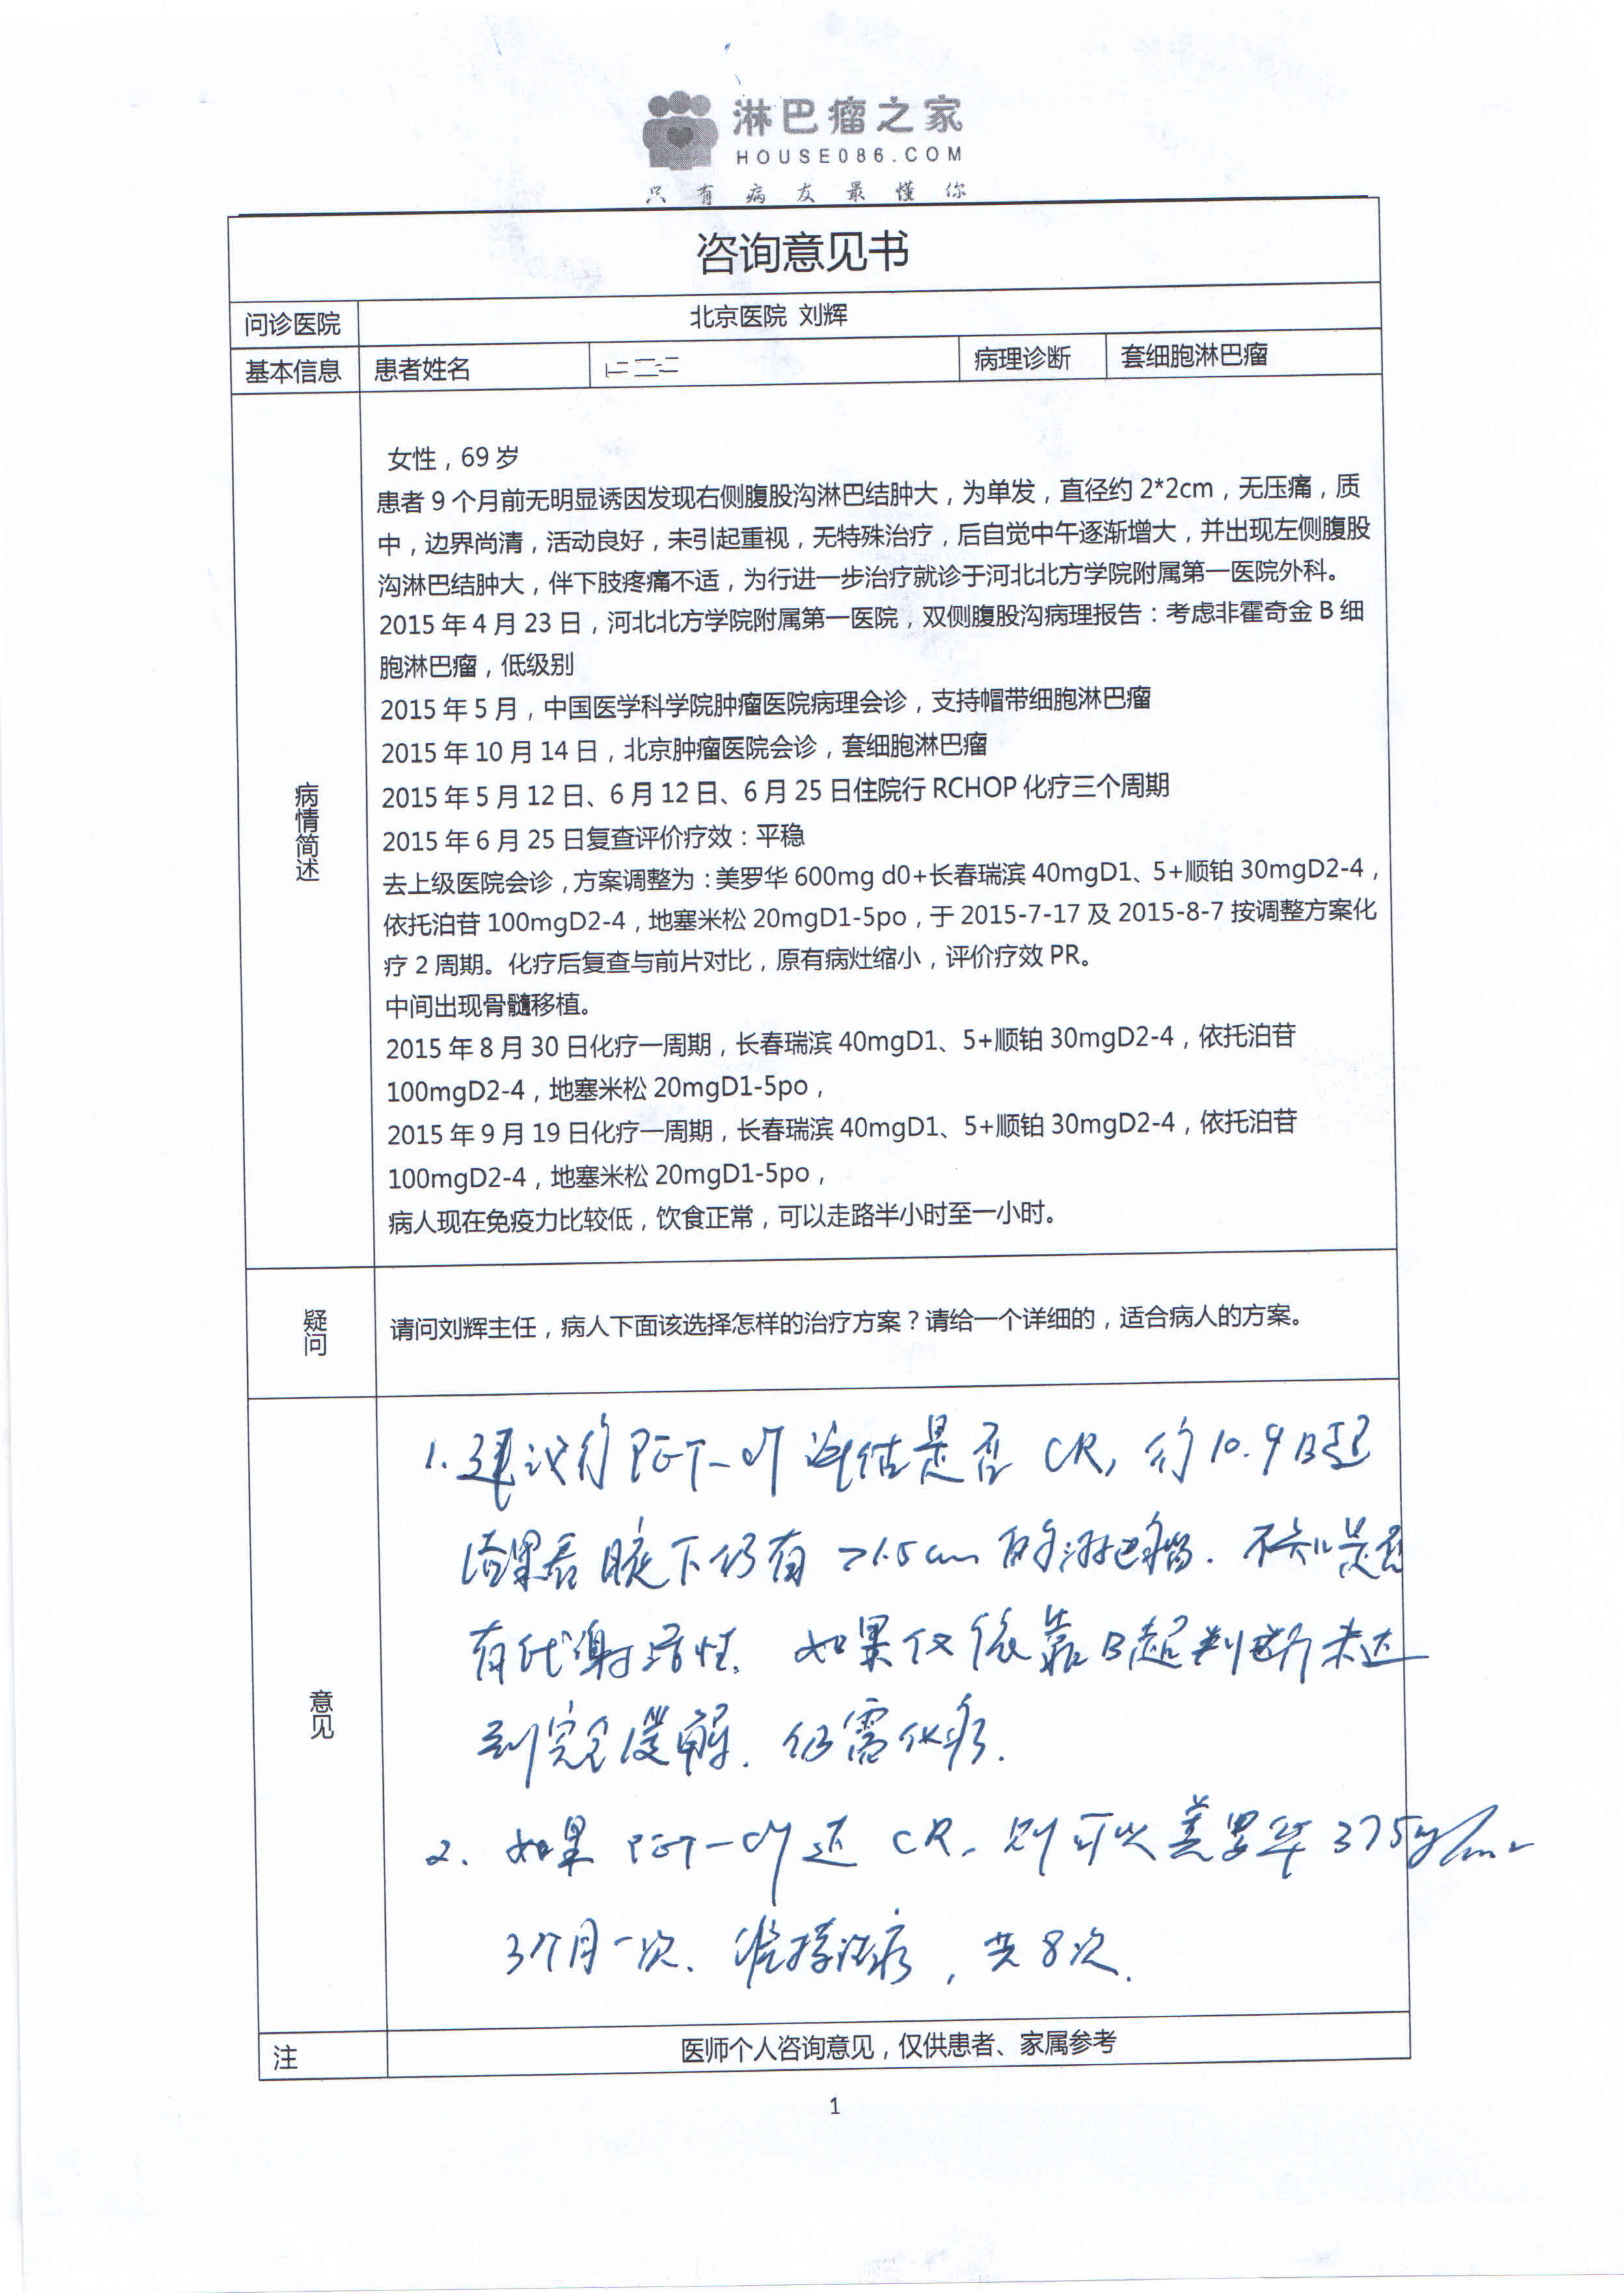 淋巴瘤之家
HOUSE086.COM
只有病友最懂你
咨询意见书
问诊医院 北京医院 刘辉
基本信息 患者姓名 病理诊断 套细胞淋巴瘤
病情简述
女性，69 岁
患者 9 个月前无明显诱因发现右侧腹股沟淋巴结肿大，为单发，直径约 2*2cm，无压痛，质
中，边界尚清，活动良好，未引起重视，无特殊治疗，后自觉中午逐渐增大，并出现左侧腹股
沟淋巴结肿大，伴下肢疼痛不适，为行进一步治疗就诊于河北北方学院附属第一医院外科。
2015 年 4 月 23 日，河北北方学院附属第一医院，双侧腹股沟病理报告：考虑非霍奇金 B 细
胞淋巴瘤，低级别
2015 年 5 月，中国医学科学院肿瘤医院病理会诊，支持帽带细胞淋巴瘤
2015 年 10 月 14 日，北京肿瘤医院会诊，套细胞淋巴瘤
2015 年 5 月 12 日、6 月 12 日、6 月 25 日住院行 RCHOP 化疗三个周期
2015 年 6 月 25 日复查评价疗效：平稳
去上级医院会诊，方案调整为：美罗华 600mg d0+长春瑞滨 40mgD1、5+顺铂 30mgD2-4，
依托泊苷 100mgD2-4，地塞米松 20mgD1-5po，于 2015-7-17 及 2015-8-7 按调整方案化
疗 2 周期。化疗后复查与前片对比，原有病灶缩小，评价疗效 PR。
中间出现骨髓移植。
2015 年 8 月 30 日化疗一周期，长春瑞滨 40mgD1、5+顺铂 30mgD2-4，依托泊苷
100mgD2-4，地塞米松 20mgD1-5po，
2015 年 9 月 19 日化疗一周期，长春瑞滨 40mgD1、5+顺铂 30mgD2-4，依托泊苷
100mgD2-4，地塞米松 20mgD1-5po，
病人现在免疫力比较低，饮食正常，可以走路半小时至一小时。
疑问
请问刘辉主任，病人下面该选择怎样的治疗方案？请给一个详细的，适合病人的方案。
意见
1. 建议行 PET-CT 评估是否 CR, 10.9 B超
结果看腋下仍有 >1.5cm 的淋巴瘤. 不知是否
有代谢活性. 如果仅依靠B超判断未达
到完全缓解. 仍需化疗.
2. 如果 PET-CT 达 CR, 则可以美罗华 375mg/m2
3个月一次. 维持治疗, 共8次.
注 医师个人咨询意见，仅供患者、家属参考
1